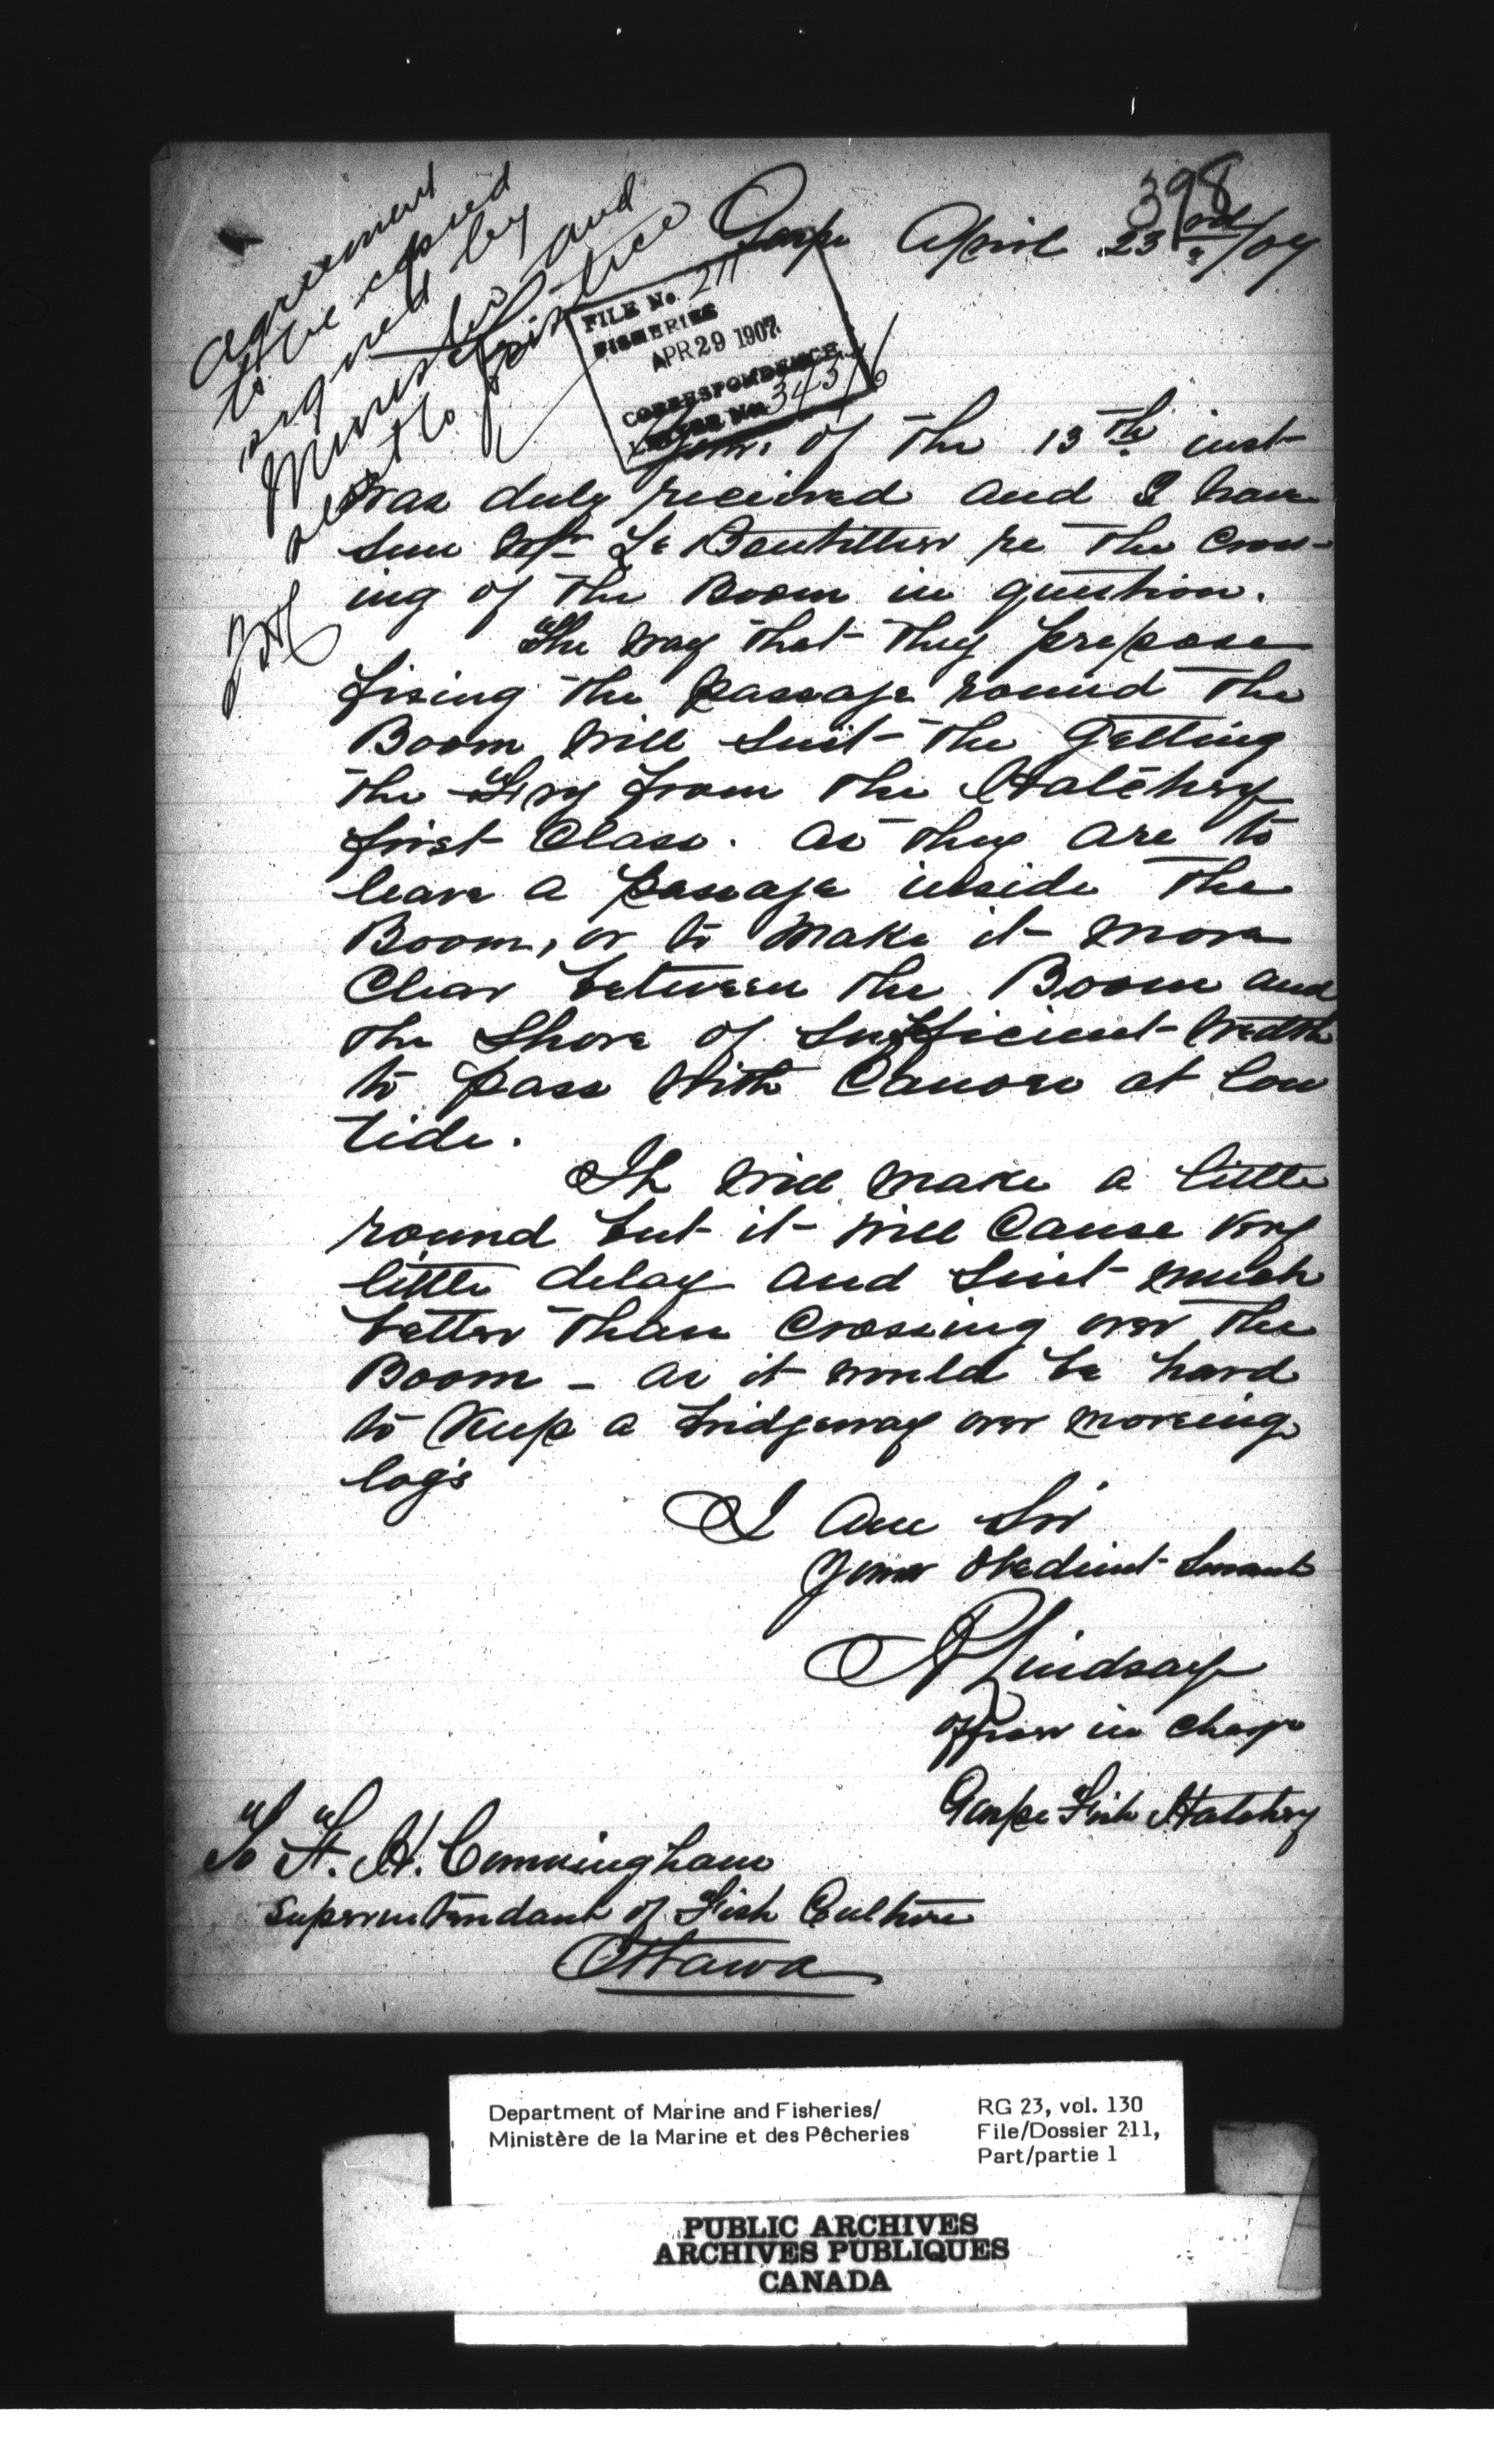 398
Gaspe April 23rd/07
agreement
to be copied
signed by
Minister and
sent to Justice
FILE No. 211
FISHERIES
APR 29 1907
CORRESPONDENCE
Yours of the 13th inst
was duly received and I have
seen Mr Le Boutillier re the Cross-
ing of the Boom in question.
The way that they propose
fixing the passage round the
Boom will suit the getting
the Fry from the Hatchery
first Class. as they are to
leave a passage inside the
Boom, or to make it more
Clear between the Boom and
the Shore of sufficient width
to pass with Canoes at low
tide.
It will make a little
round but it will Cause very
little delay and suit much
better than Crossing over the
Boom - as it would be hard
to Keep a bridgeway over moveing
log's
I am Sir
Your Obedient Servant
A Lindsay
Officer in Charge
Gaspe Fish Hatchery
To F. H. Cunningham
Superintendant of Fish Culture
Ottawa
Department of Marine and Fisheries/
Ministère de la Marine et des Pêcheries
RG 23, vol. 130
File/Dossier 211,
Part/partie 1
PUBLIC ARCHIVES
ARCHIVES PUBLIQUES
CANADA